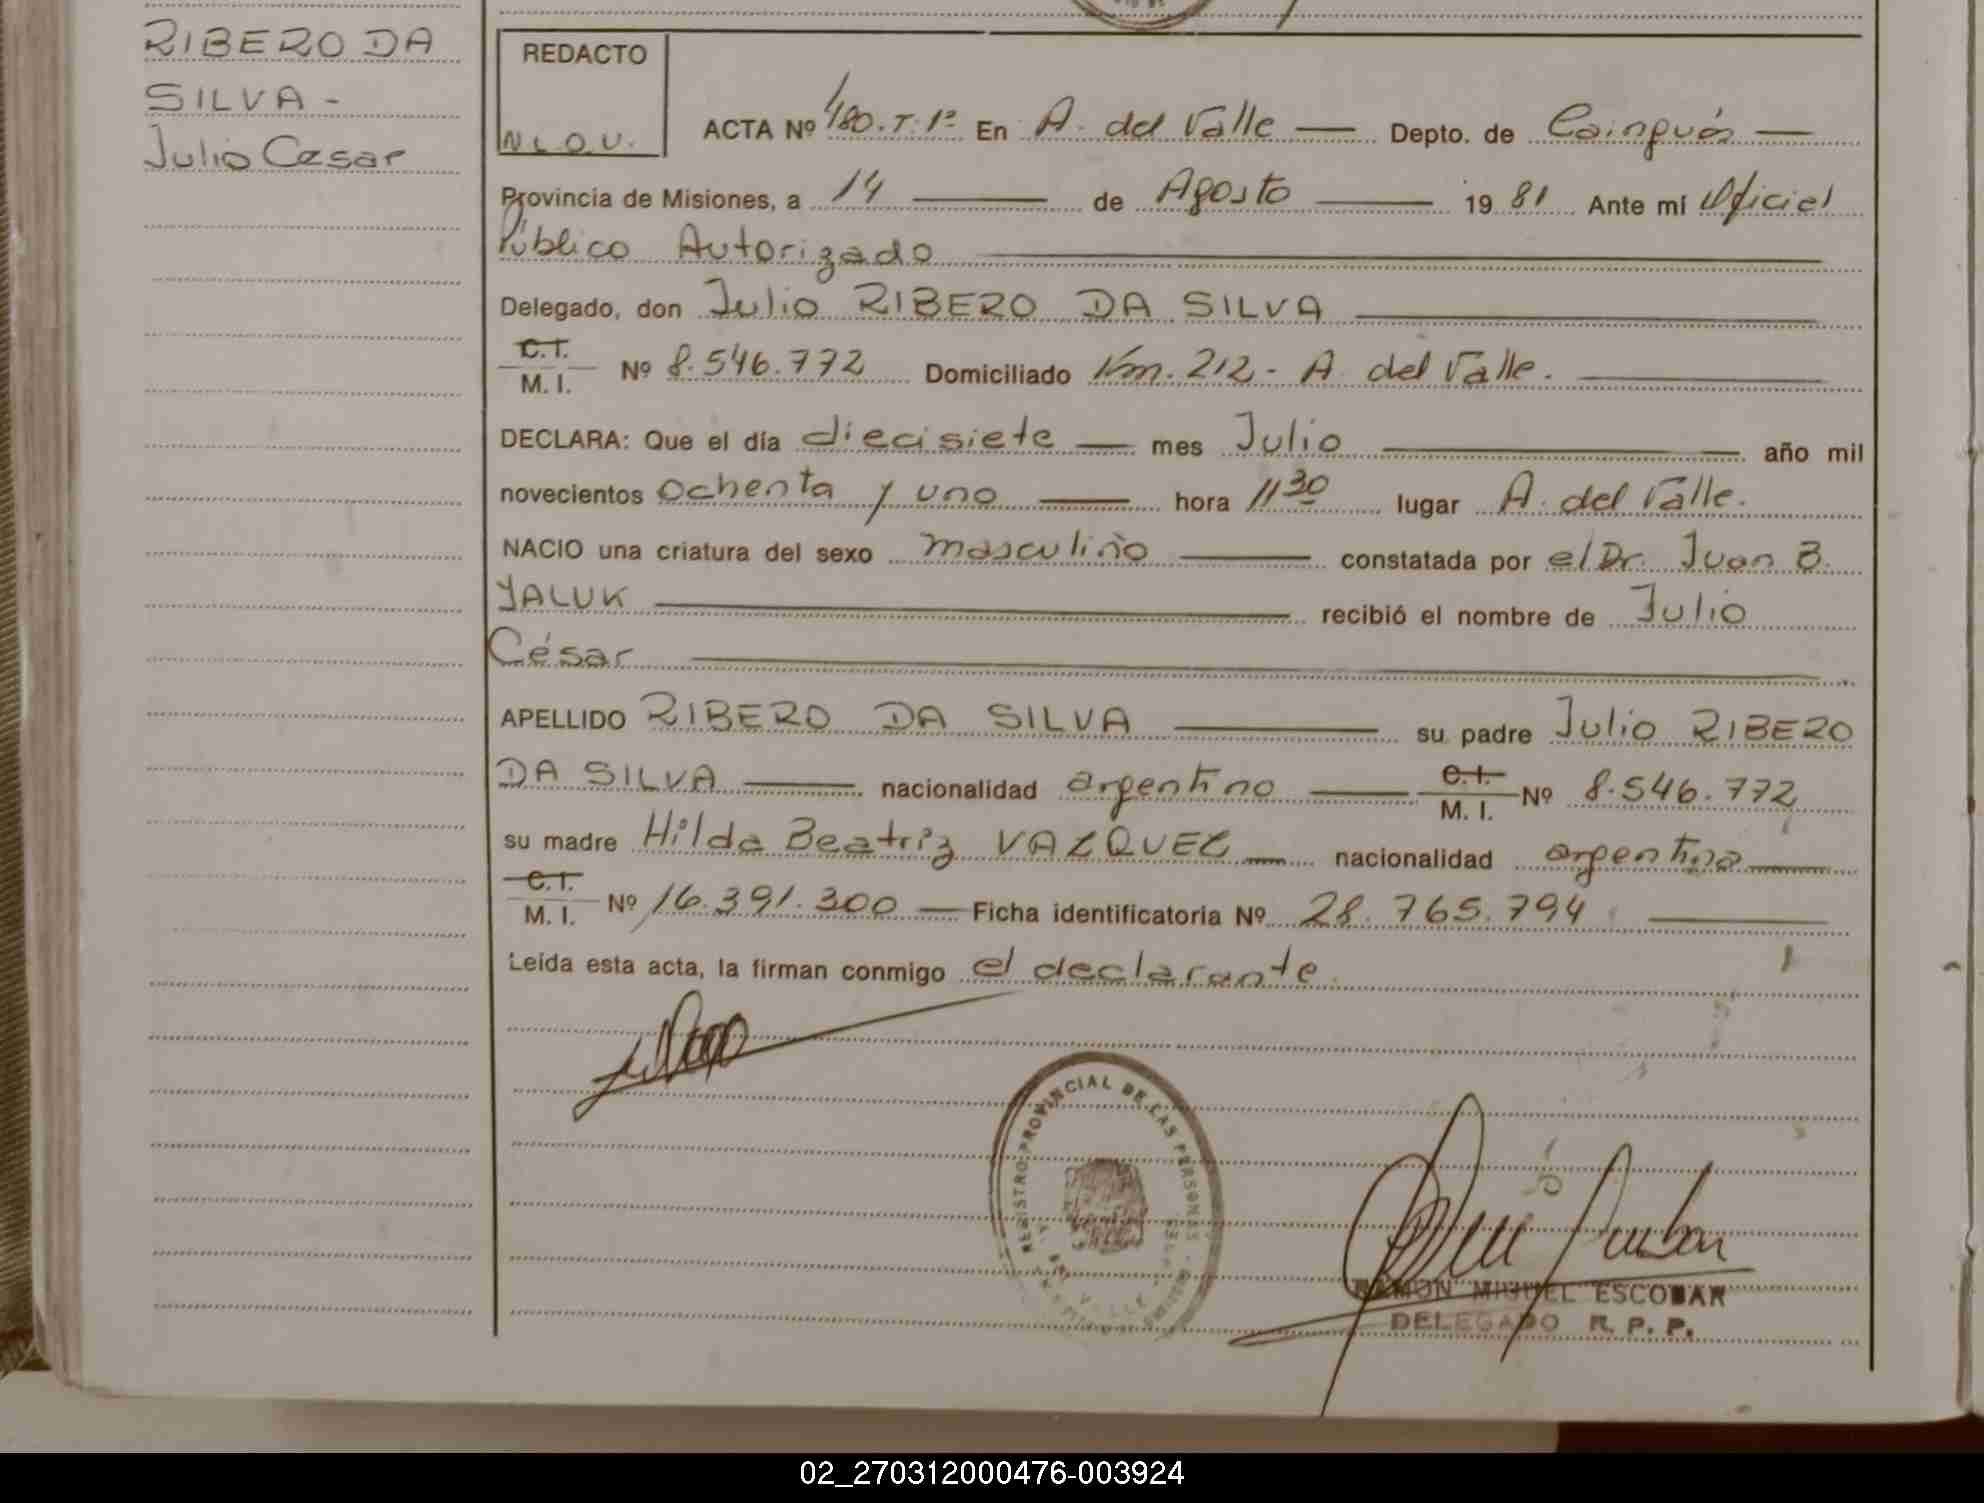 RIBERO DA
SILVA -
Julio Cesar
REDACTO
N.L.O.V.
ACTA Nº 480.T.1º En A. del Valle — Depto. de Cainguás —
Provincia de Misiones, a 14 — de Agosto — 19 81 Ante mí Oficial
Público Autorizado
Delegado, don Julio RIBERO DA SILVA
C.I. / M. I. Nº 8.546.772 Domiciliado Km. 212 - A. del Valle.
DECLARA: Que el día diecisiete — mes Julio — año mil
novecientos ochenta y uno — hora 11 30 lugar A. del Valle.
NACIO una criatura del sexo masculino — constatada por el Dr. Juan B.
YALUK — recibió el nombre de Julio
César
APELLIDO RIBERO DA SILVA — su padre Julio RIBERO
DA SILVA — nacionalidad argentino — C.I. / M. I. Nº 8.546.772
su madre Hilda Beatriz VAZQUEZ — nacionalidad argentina
C.I. / M. I. Nº 16.391.300 — Ficha identificatoria Nº 28.765.794
Leída esta acta, la firman conmigo el declarante.
REGISTRO PROVINCIAL DE LAS PERSONAS
RAMON MIGUEL ESCOBAR
DELEGADO R. P. P.
02_270312000476-003924